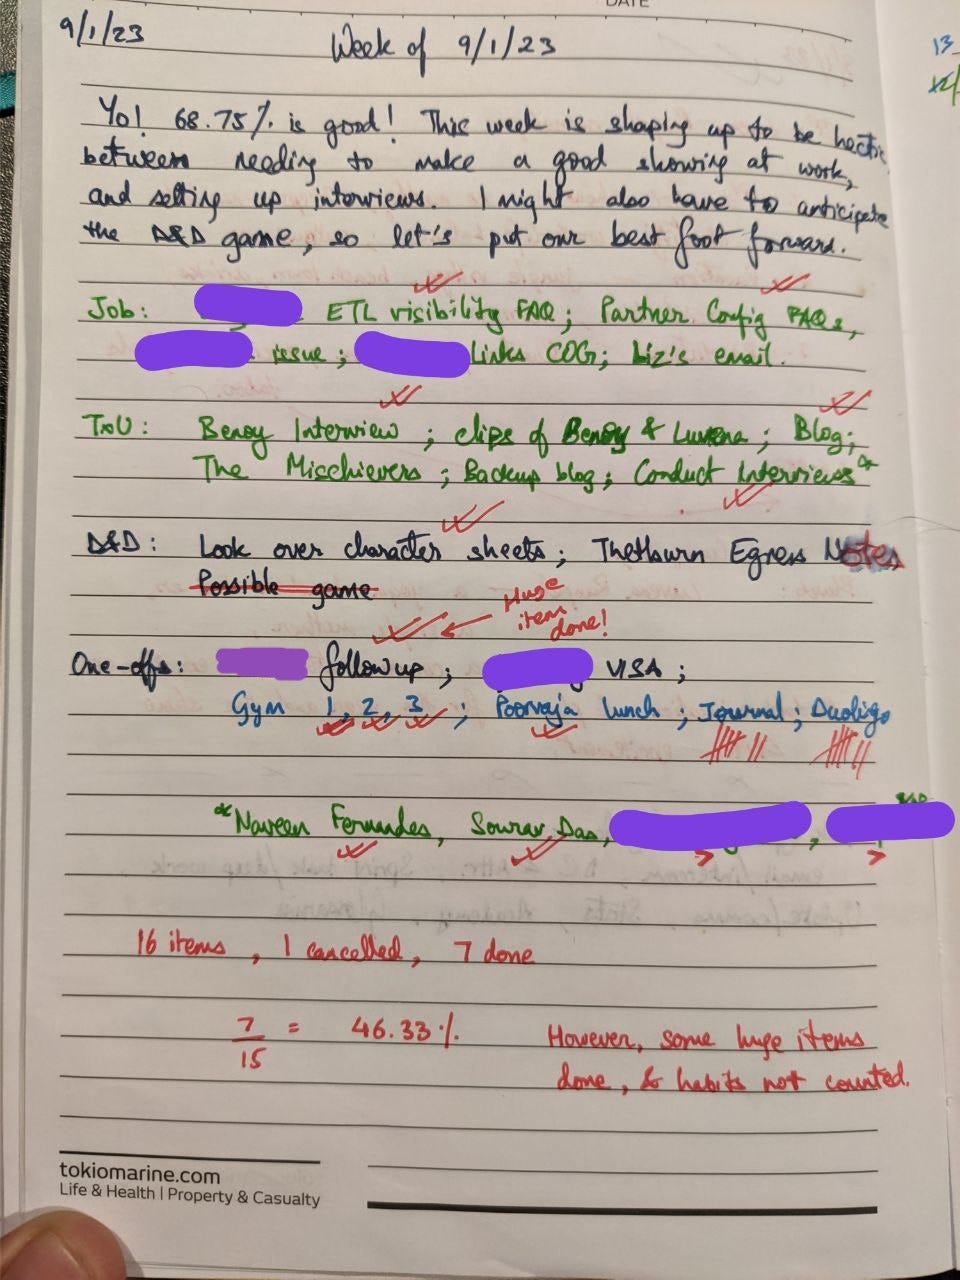 DATE
9/1/23
Week of 9/1/23
13
Yo! 68.75% is good! This week is shaping up to be hectic
between needing to make a good showing at work,
and setting up interviews. I might also have to anticipate
the D&D game, so let's put our best foot forward.
Job: ETL visibility FAQ; Partner Config FAQs,
issue; Links COG; Liz's email.
TMU: Benoy Interview; clips of Benoy & Luvena; Blog;
The Mischievers; Backup blog; Conduct Interviews*
D&D: Look over character sheets; Egress Notes
Possible game
Huge
item
done!
One-offs: follow up; VISA;
Gym 1, 2, 3; Poorvaja lunch; Journal; Duolingo
*Naveen Fernandes, Sourav Das,
16 items, 1 cancelled, 7 done
7 = 46.33% However, some huge items
15 done, & habits not counted.
tokiomarine.com
Life & Health | Property & Casualty